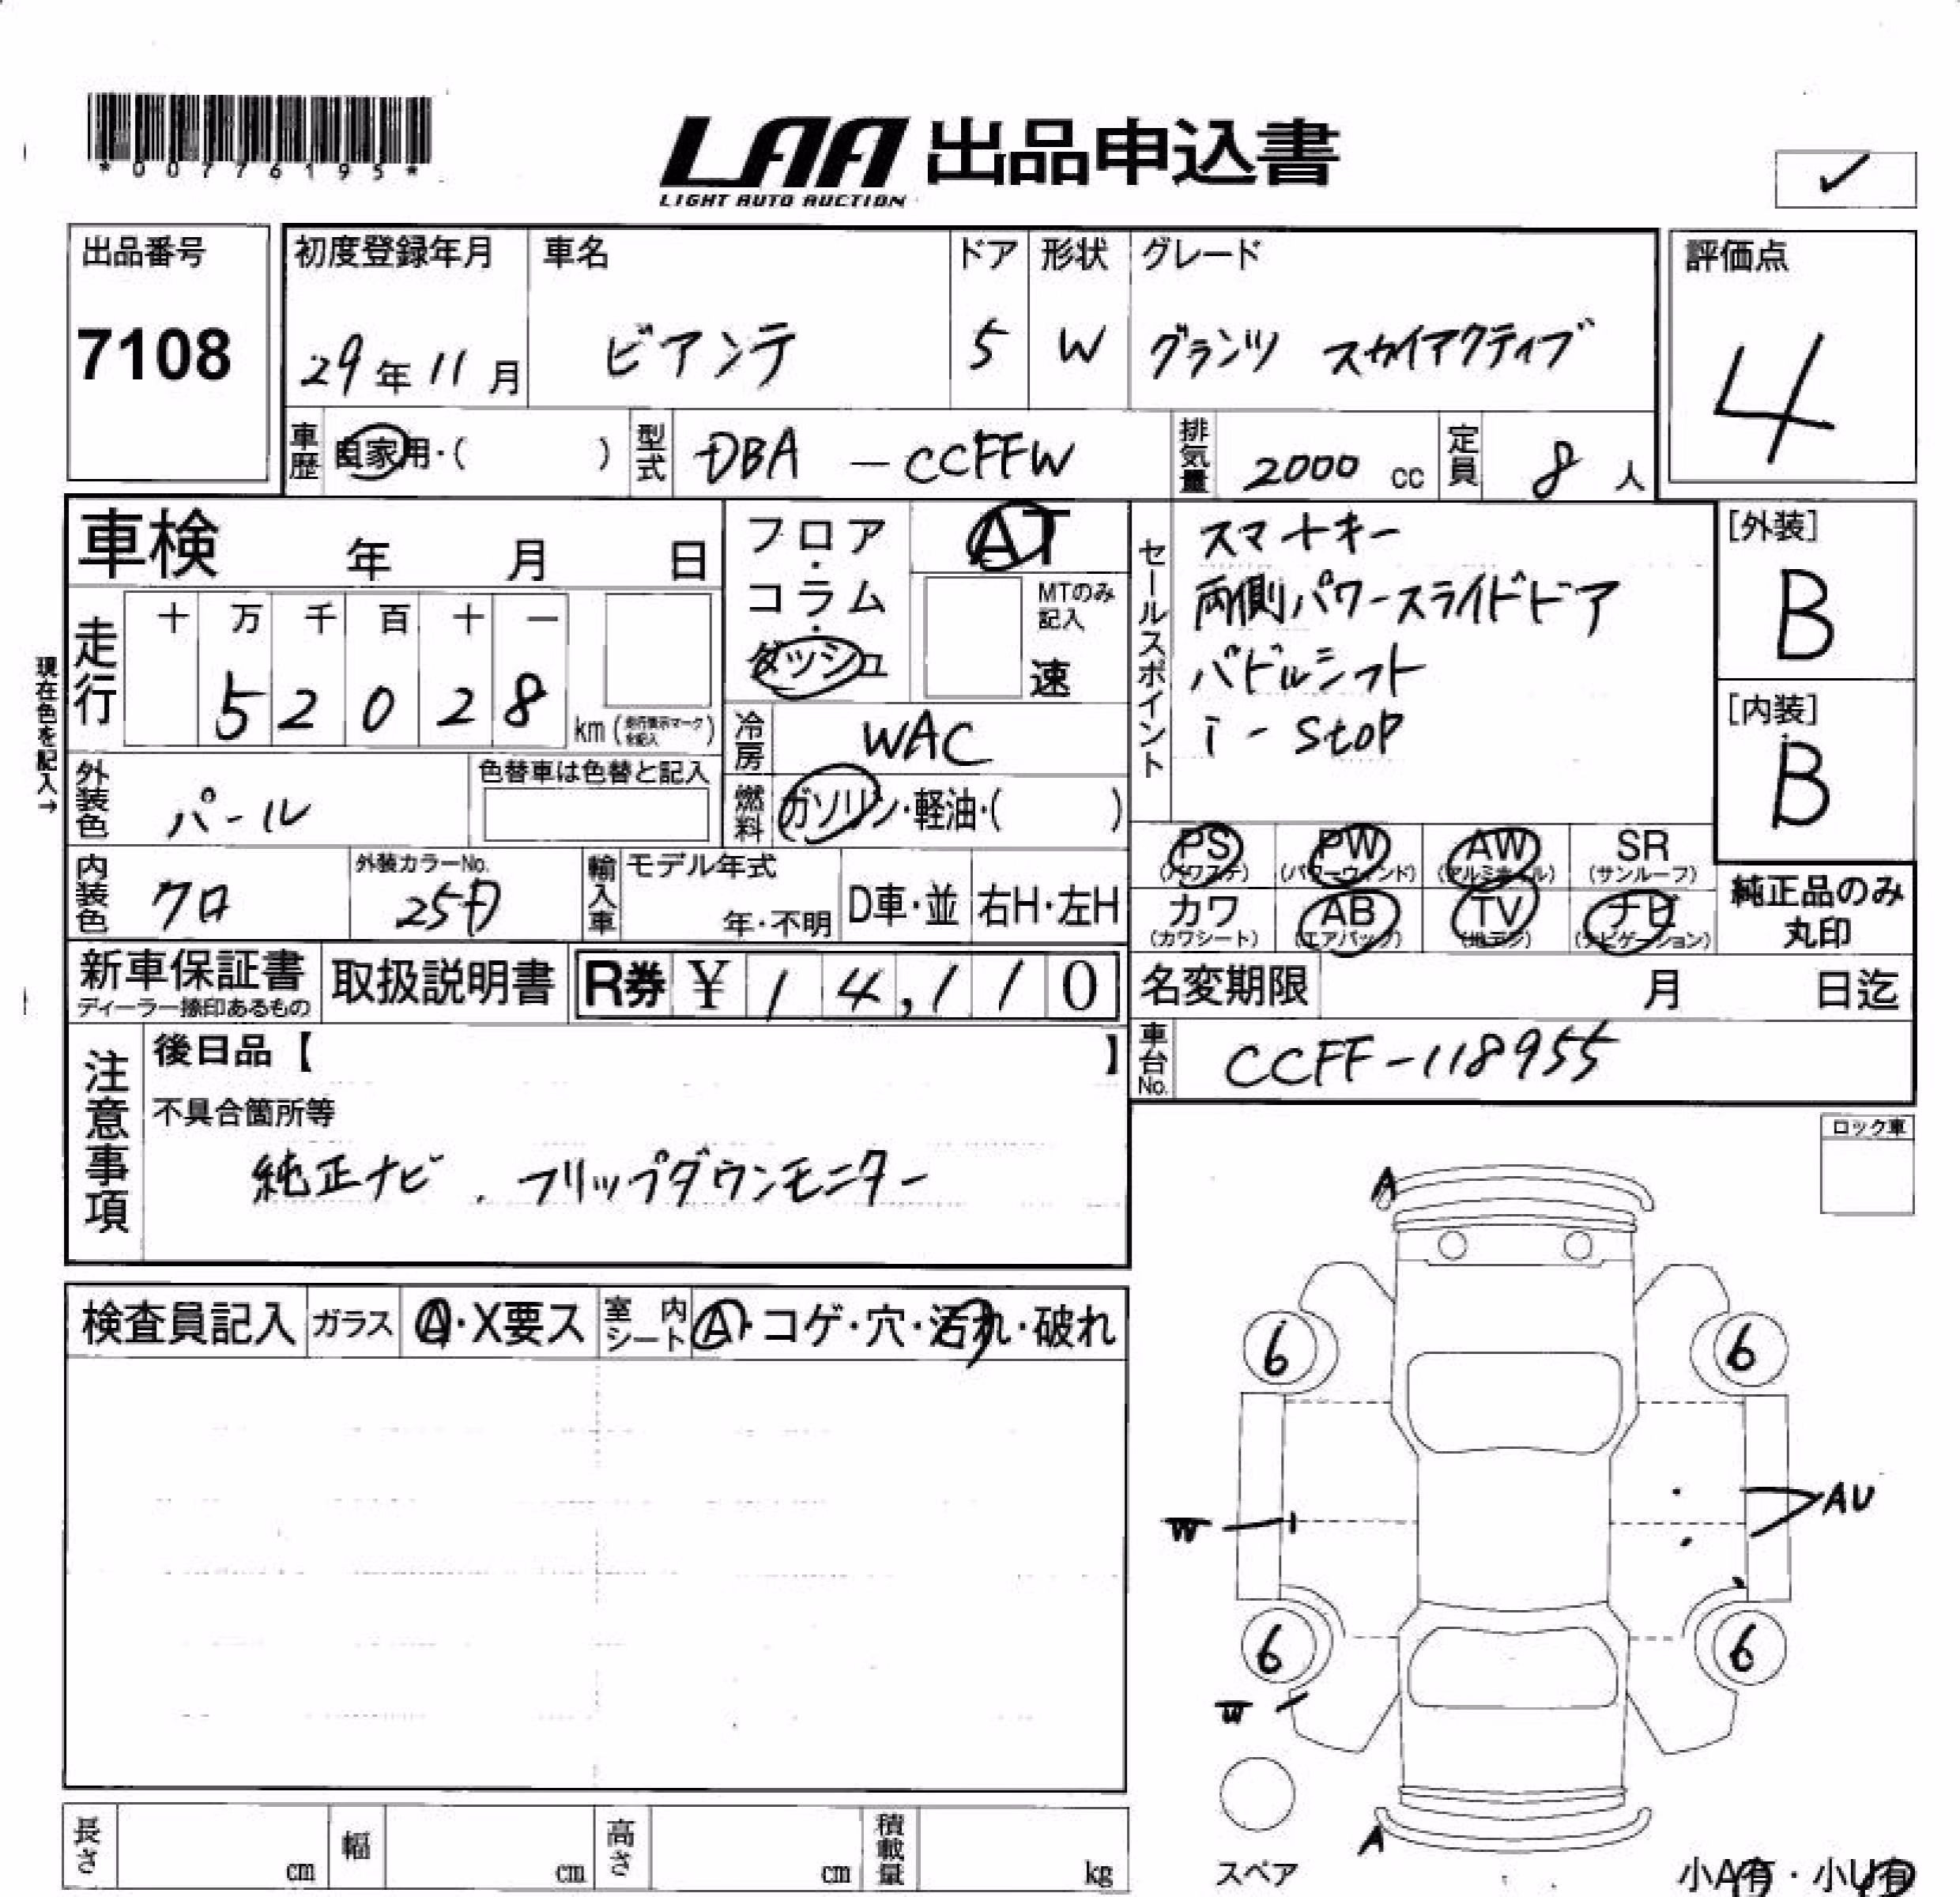 *00776195*
LAA 出品申込書
LIGHT AUTO AUCTION
✓
出品番号
7108
初度登録年月
29年11月
車名
ビアンテ
ドア
5
形状
W
グレード
グランツ スカイアクティブ
評価点
4
車歴
自家用・( )
型式
DBA-CCFFW
排気量
2000 cc
定員
8 人
車検 年 月 日
走行
十 万 千 百 十 一
5 2 0 2 8
km (走行表示マークを記入)
現在色を記入→
フロア・コラム・ダッシュ
AT
MTのみ記入
速
冷房
WAC
燃料
ガソリン・軽油・( )
セールスポイント
スマートキー
両側パワースライドドア
パドルシフト
i-stop
[外装]
B
[内装]
B
外装色
パール
色替車は色替と記入
内装色
クロ
外装カラーNo.
輸入車
モデル年式
年・不明
D車・並
右H・左H
PS
(パワステ)
PW
(パワーウィンド)
AW
(アルミホイル)
SR
(サンルーフ)
カワ
(カワシート)
AB
(エアバック)
TV
(地デジ)
ナビ
(ナビゲーション)
純正品のみ
丸印
新車保証書
ディーラー捺印あるもの
取扱説明書
R券 ¥ 14,110
名変期限 月 日迄
車台No.
CCFF-118955
注意事項
後日品【 】
不具合箇所等
純正ナビ . フリップダウンモニター
ロック車
検査員記入
ガラス
A・X要ス
室内シート
A・コゲ・穴・汚れ・破れ
A
6
6
W
AU
6
6
W
A
スペア
長さ cm
幅 cm
高さ cm
積載量 kg
小A有・小U有